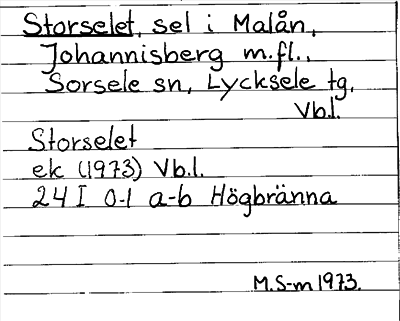 Storselet, sel i Malån,
Johannisberg m.fl.,
Sorsele sn, Lycksele tg,
Vb.l.
Storselet
ek (1973) Vb.l.
24 I 0-1 a-b Högbränna
M.S-m 1973.